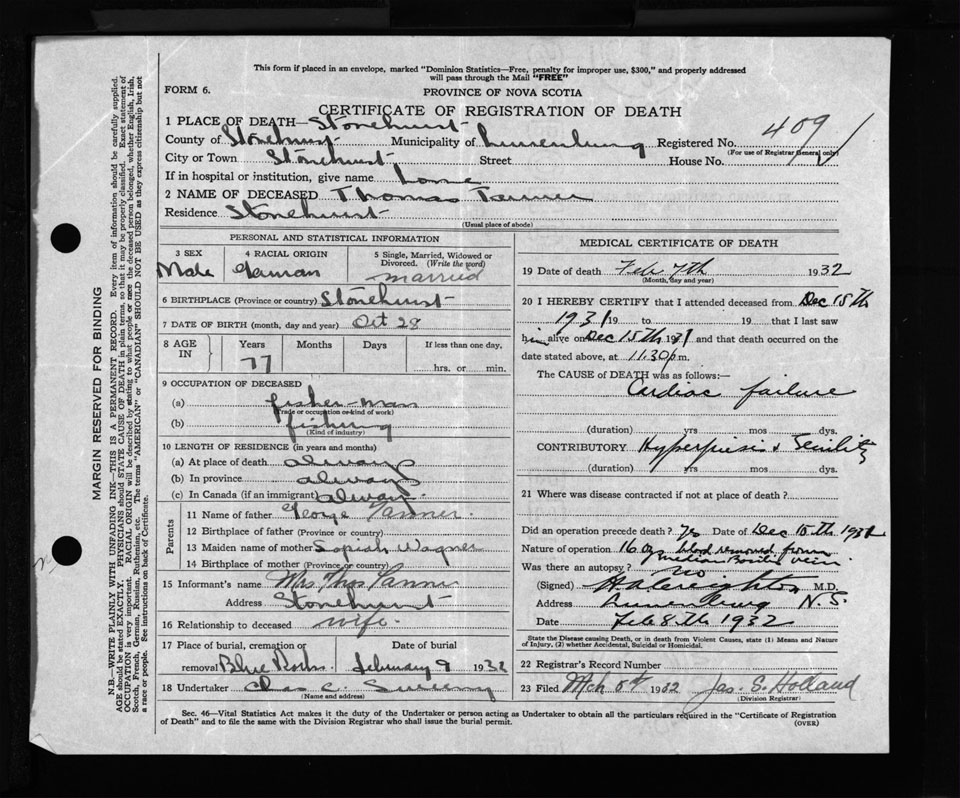 This form if placed in an envelope, marked "Dominion Statistics—Free, penalty for improper use, $300," and properly addressed
will pass through the Mail "FREE"
FORM 6.
PROVINCE OF NOVA SCOTIA
CERTIFICATE OF REGISTRATION OF DEATH
1 PLACE OF DEATH—Stonehurst
County of Stonehurst Municipality of Lunenburg Registered No. 409
(For use of Registrar General only)
City or Town Stonehurst Street House No.
If in hospital or institution, give name home
2 NAME OF DECEASED Thomas Tanner
Residence Stonehurst
(Usual place of abode)
PERSONAL AND STATISTICAL INFORMATION
3 SEX
Male
4 RACIAL ORIGIN
German
5 Single, Married, Widowed or
Divorced. (Write the word)
married
6 BIRTHPLACE (Province or country) Stonehurst
7 DATE OF BIRTH (month, day and year) Oct 28
8 AGE
IN
Years
77
Months
Days
If less than one day.
hrs. or min.
9 OCCUPATION OF DECEASED
(a) fisher-man
(Trade or occupation or kind of work)
(b) fishing
(Kind of industry)
10 LENGTH OF RESIDENCE (in years and months)
(a) At place of death always
(b) In province always
(c) In Canada (if an immigrant) always
Parents
11 Name of father George Tanner
12 Birthplace of father (Province or country)
13 Maiden name of mother Sopiah Wagner
14 Birthplace of mother (Province or country)
15 Informant's name Mrs Thos Tanner
Address Stonehurst
16 Relationship to deceased wife.
17 Place of burial, cremation or
removal Blue Rocks.
Date of burial
february 9 1932
18 Undertaker Chas C. Sweeny
(Name and address)
MEDICAL CERTIFICATE OF DEATH
19 Date of death Feb 7th 1932
(Month, day and year)
20 I HEREBY CERTIFY that I attended deceased from Dec 15th
1931 19 to 19 that I last saw
him alive on Dec 15th 1931 and that death occurred on the
date stated above, at 11.30 p m.
The CAUSE of DEATH was as follows:—
Cardiac failure
(duration) yrs mos dys.
CONTRIBUTORY & Senility
(duration) yrs mos dys.
21 Where was disease contracted if not at place of death?
Did an operation precede death? Yes Date of Dec 15th 1931
Nature of operation 16 oz blood removed from
vein
Was there an autopsy? no
(Signed) H A Creighton M.D.
Address Lunenburg N.S.
Date Feb 8th 1932
State the Disease causing Death, or in death from Violent Causes, state (1) Means and Nature
of Injury, (2) whether Accidental, Suicidal or Homicidal.
22 Registrar's Record Number
23 Filed Mch 5th 1932 Jas. S. Holland
(Division Registrar)
Sec. 46—Vital Statistics Act makes it the duty of the Undertaker or person acting as Undertaker to obtain all the particulars required in the "Certificate of Registration
of Death" and to file the same with the Division Registrar who shall issue the burial permit.
(OVER)
MARGIN RESERVED FOR BINDING
N.B—WRITE PLAINLY WITH UNFADING INK—THIS IS A PERMANENT RECORD. Every item of information should be carefully supplied.
AGE should be stated EXACTLY. PHYSICIANS should STATE CAUSE OF DEATH in plain terms, so that it may be properly classified. Exact statement of
OCCUPATION is very important. RACIAL ORIGIN will be described by stating to what people or race the deceased person belonged, whether English, Irish,
Scotch, French, German, Russian, Ruthenian, etc. The terms "AMERICAN" or "CANADIAN" SHOULD NOT BE USED as they express citizenship but not
a race or people. See instructions on back of Certificate.